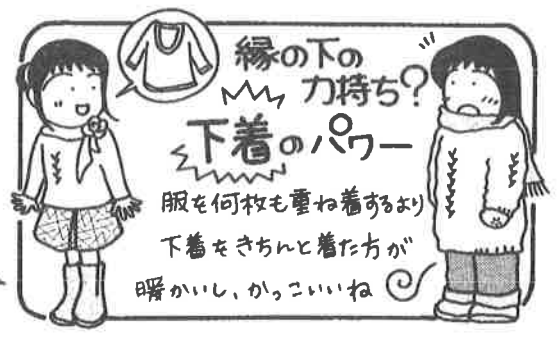 縁の下の
力持ち?
下着のパワー
服を何枚も重ね着するより
下着をきちんと着た方が
暖かいし、かっこいいね